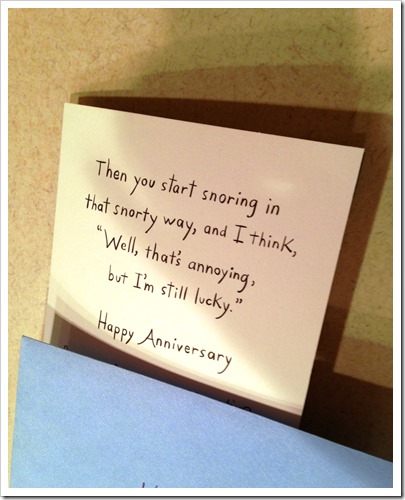 Then you start snoring in
that snorty way, and I think,
"Well, that's annoying,
but I'm still lucky."
Happy Anniversary